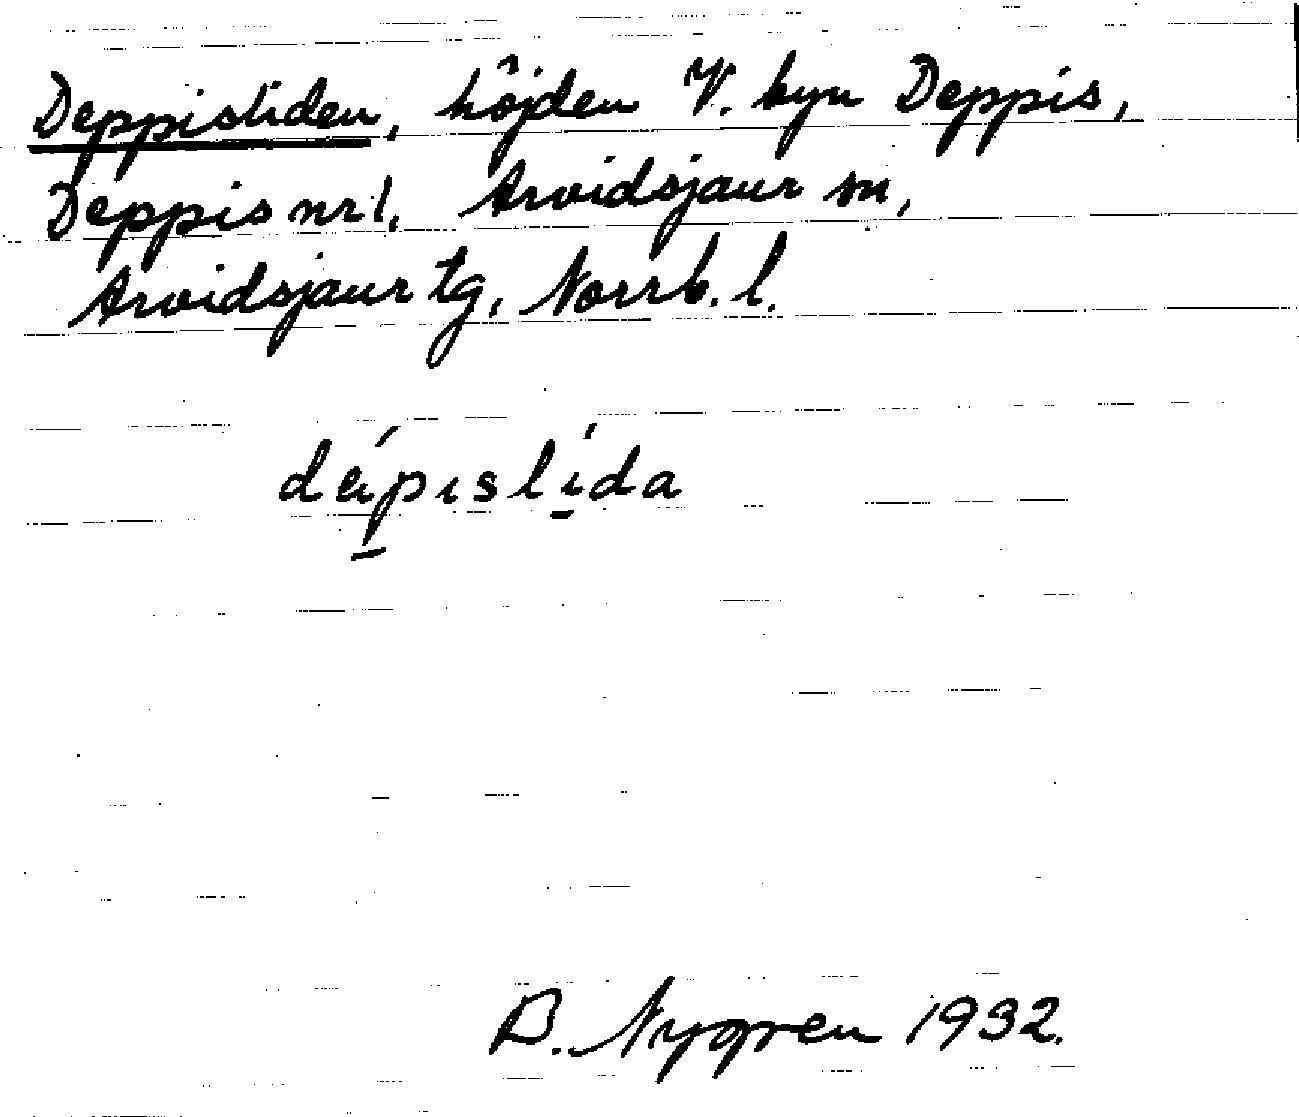 Deppisliden, höjden V. byn Deppis,
Deppis nr 1, Arvidsjaur sn,
Arvidsjaur tg, Norrb. l.
dépislída
B. Nygren 1932.